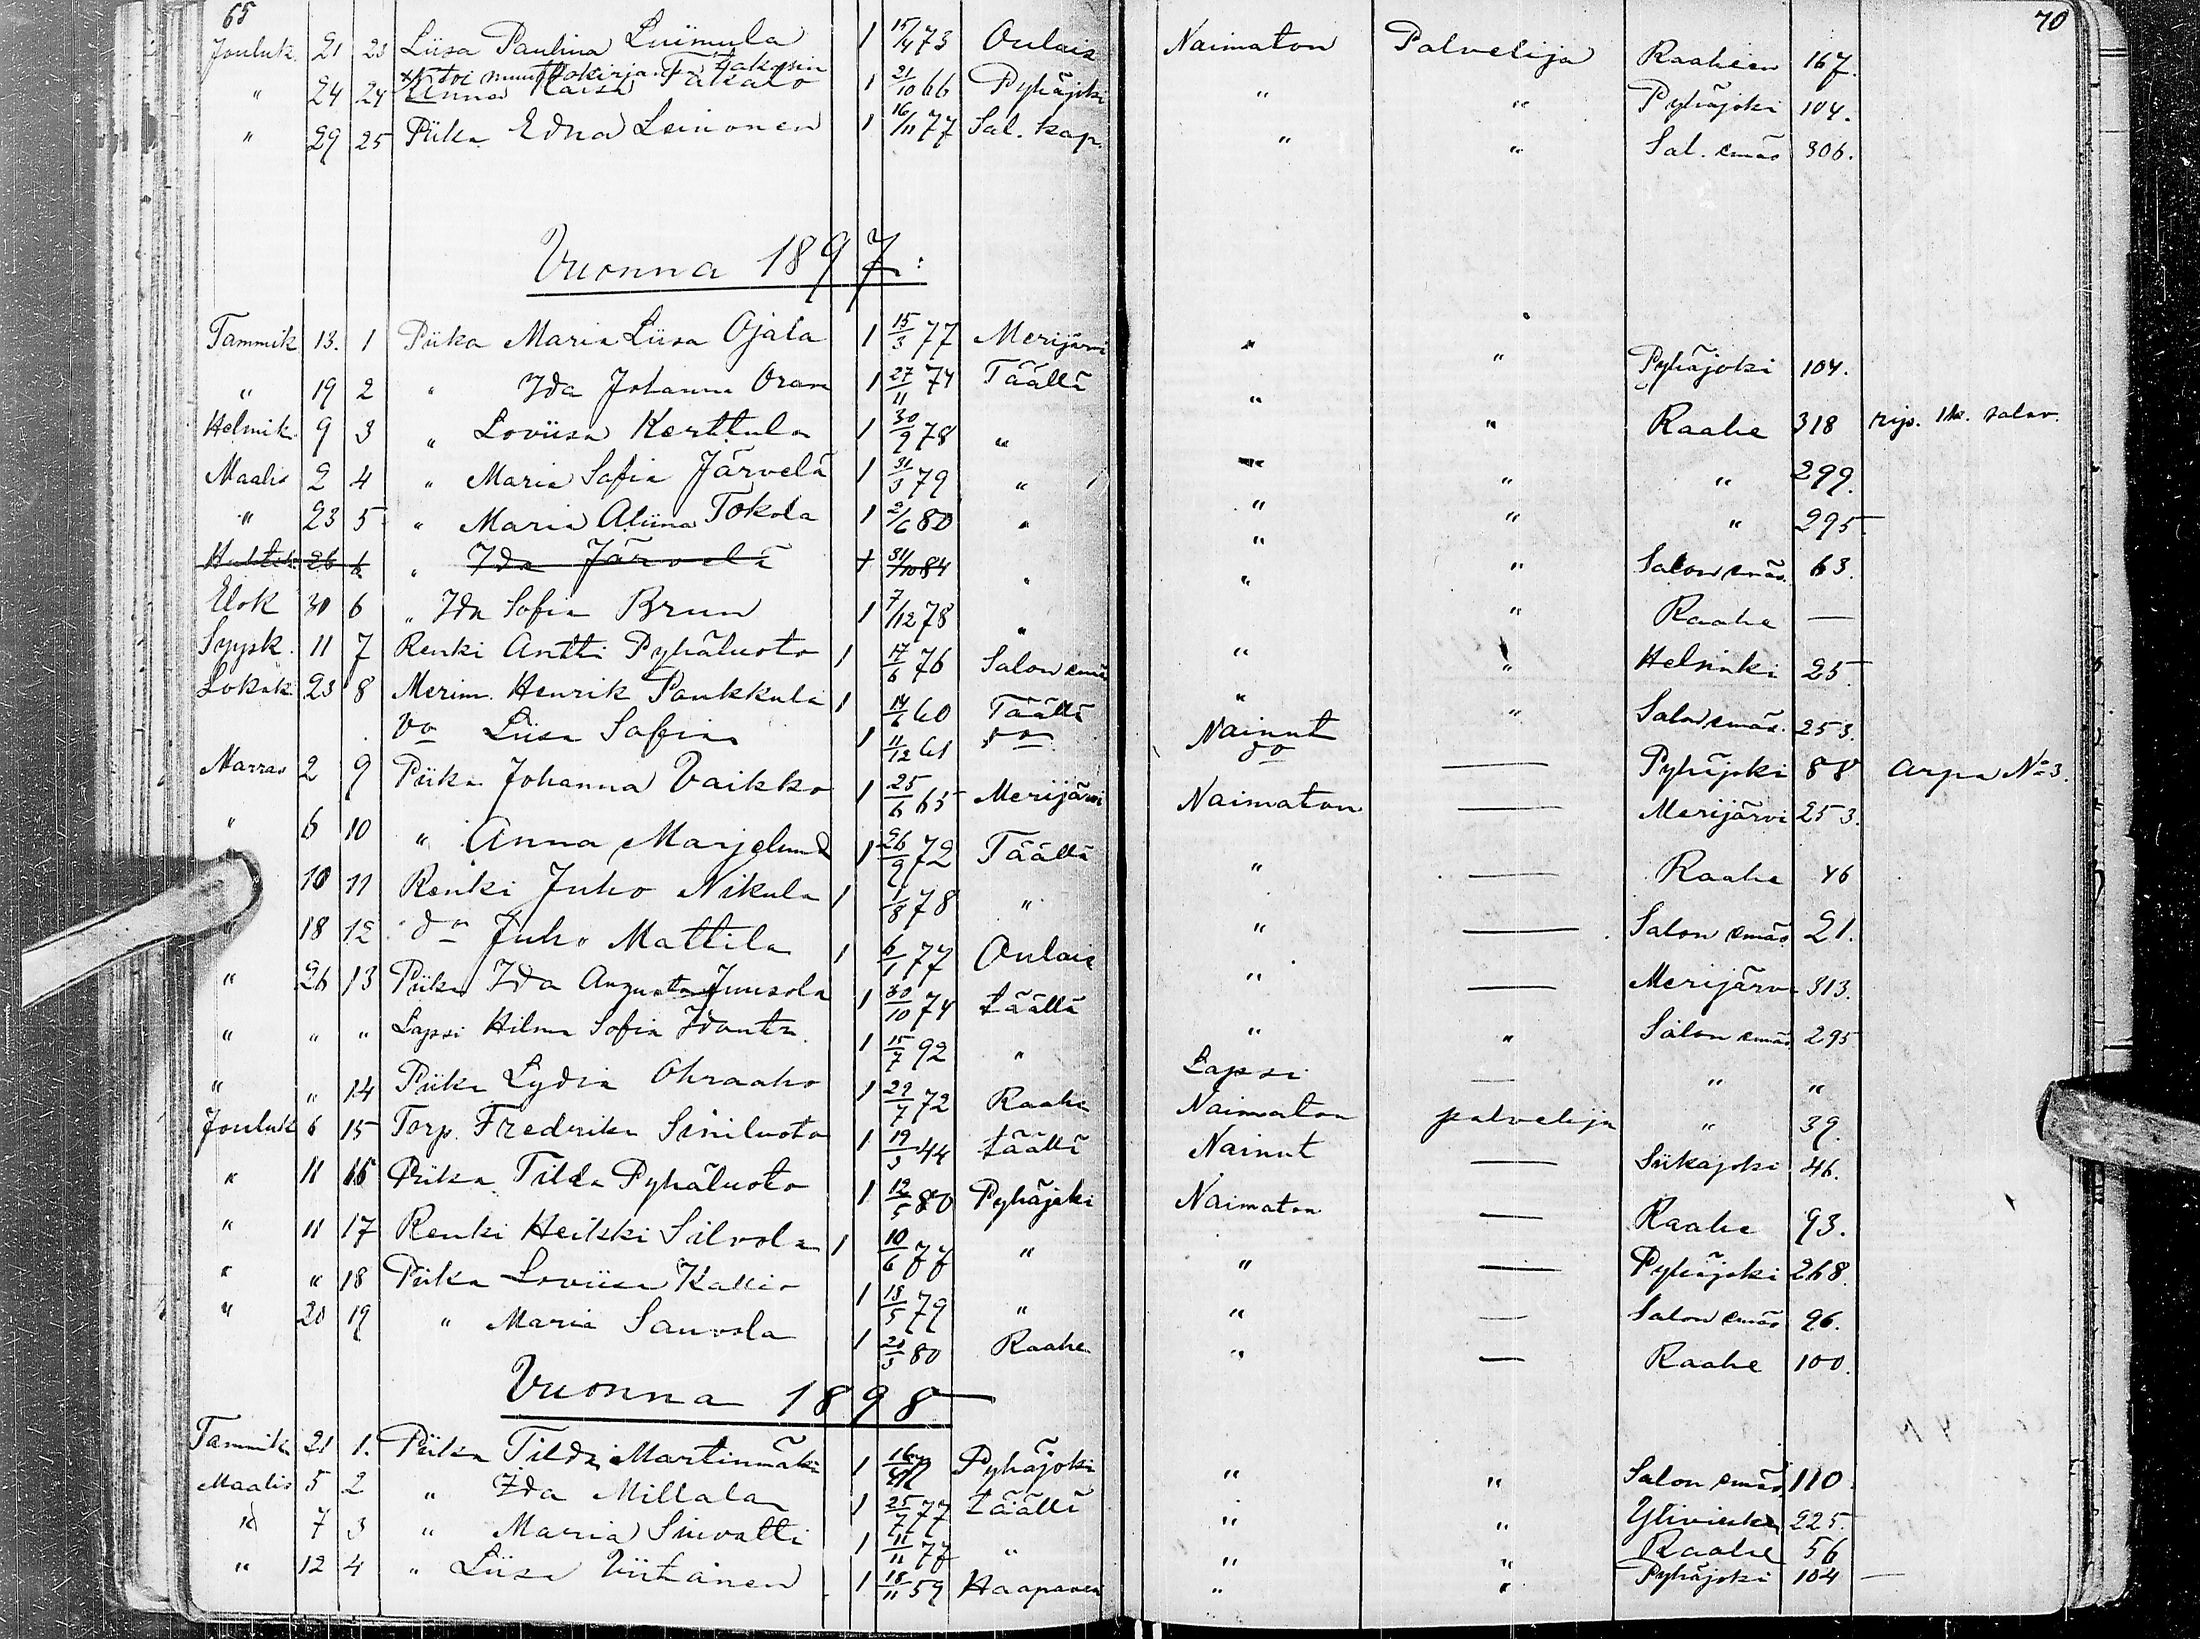 65 70
Jouluk. 21 23 Liisa Paulina Luimula 1 15/4 73 Oulais Naimaton Palvelija Raaheen 167.
toi muuttokirjan takasin
" 24 24 Kaisa Takalo 1 21/10 66 Pyhäjoki " " Pyhäjoki 104.
" 29 25 Piika Edna Leinonen 1 16/11 77 Sal. kap. " " Sal. emäs 306.
Vuonna 1897:
Tammik 13. 1 Piika Maria Liisa Ojala 1 15/3 77 Merijärvi " " Pyhäjoki 104.
" 19 2 " Ida Johanna Oran 1 27/11 74 Täällä " " Raahe 318 rip. lk. salov.
Helmik. 9 3 " Loviisa Kerttula 1 30/9 78 " " " " 299.
Maalis 2 4 " Maria Sofia Järvelä 1 31/3 79 " " " " 295
" 23 5 " Maria Aliina Tokola 1 2/6 80 " " " Salon emäs. 63.
26 6 " Ida Järvelä 1 31/10 84 " " " Raahe —
Elok 30 6 " Ida Sofia Brun 1 7/12 78 " " " Helsinki 25
Syysk. 11 7 Renki Antti Pyhäluoto 1 17/6 76 Salon emäs " " Salon emäs. 253.
Lokak 23 8 Merim. Henrik Paukkula 1 14/6 60 Täällä Nainut — Pyhäjoki 88 Arpa No 3.
Vo Liisa Sofia 1 11/12 61 do do
Marras 2 9 Piika Johanna Vaikko 1 25/6 65 Merijärvi Naimaton — Merijärvi 253.
" 6 10 " Anna Marjelund 1 26/9 72 Täällä " — Raahe 46
10 11 Renki Juho Nikula 1 1/8 78 " " — Salon emäs 21.
" 18 12 do Juho Mattila 1 6/1 77 Oulais " — Merijärvi 313.
" 26 13 Piika Ida Augusta Juusola 1 30/10 74 täällä " " Salon emäs 295
" " " Lapsi Hilma Sofia Idanta. 1 15/7 92 " Lapsi — " "
" " 14 Piika Lydia Ohraaho 1 29/7 72 Raahe Naimaton palvelija " 39.
Jouluk 6 15 Torp. Fredrika Siniluoto 1 19/3 44 täällä Nainut — Siikajoki 46.
" 11 16 Piika Tilda Pyhäluoto 1 12/5 80 Pyhäjoki Naimaton — Raahe 93.
" 11 17 Renki Heikki Silvola 1 10/6 77 " " — Pyhäjoki 268.
" " 18 Piika Loviisa Kallio 1 18/5 79 " " — Salon emäs 96.
" 20 19 " Maria Sauvola 1 20/3 80 Raahe " — Raahe 100.
Vuonna 1898
Tammik 21 1. Piika Tilda Martinmäki 1 Pyhäjoki " " Salon emäs. 110.
Maalis 5 2 " Ida Millala 1 25/7 77 täällä " " Ylivieska 225.
" 7 3 " Maria Siuvatti 1 11/11 77 " " " Raahe 56
" 12 4 " Liisa Viitanen 1 18/11 59 Haapaven " " Pyhäjoki 104 —